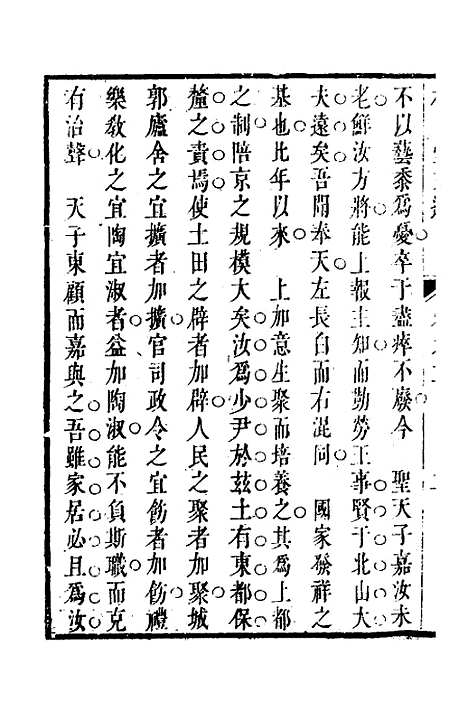 不以藝黍爲憂卒于盡瘁不廢今　聖天子嘉汝未
老鮮汝方將能上報主知而勤勞王事賢于北山大
夫遠矣吾聞奉天左長白而右混同　國家發祥之
基也比年以來　上加意生聚而培養之其爲上都
之制陪京之規模大矣汝爲少尹於兹土有東都保
釐之責焉使土田之辟者加辟人民之聚者加聚城
郭廬舍之宜擴者加擴官司政令之宜飭者加飭禮
樂敎化之宜陶宜淑者益加陶淑能不負斯職而克
有治聲　天子東顧而嘉與之吾雖家居必且爲汝